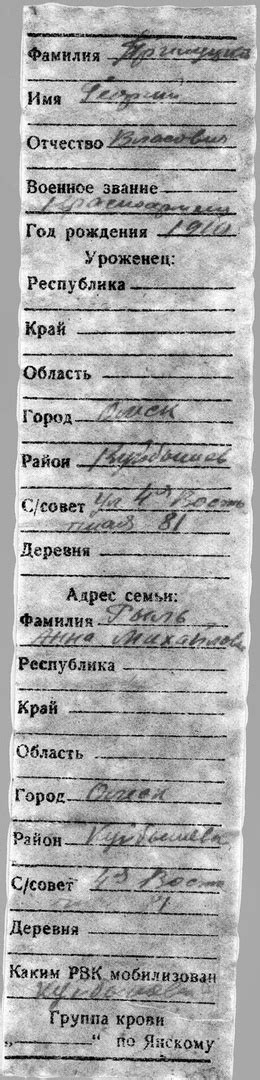 Фамилия
Имя Георгий
Отчество Власович
Военное звание
Красноармеец
Год рождения 1910
Уроженец:
Республика
Край
Область
Город Омск
Район Куйбышев
С/совет ул 4я Восточ
81
Деревня
Адрес семьи:
Фамилия Гыль
Анна Михайловн
Республика
Край
Область
Город Омск
Район Куйбышев
С/совет 4я Восто
81
Деревня
Каким РВК мобилизован
Куйбышев
Группа крови
„ “ по Янскому